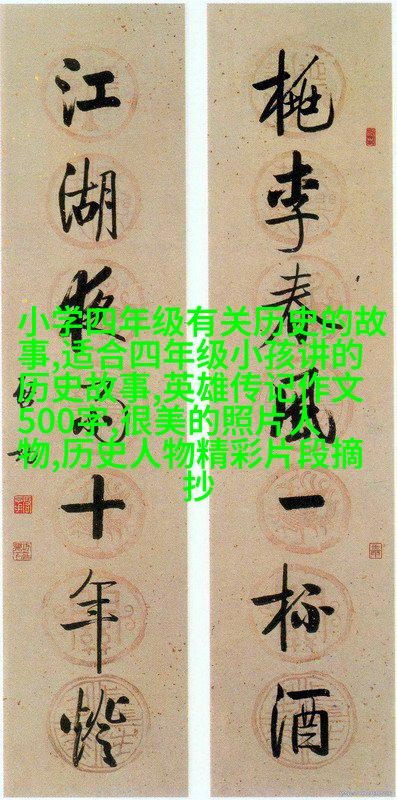 桃李春風一杯酒
江湖夜雨十年燈
小学四年级有关历史的故
事,适合四年级小孩讲的
历史故事,英雄传记作文
500字,很美的照片人
物,历史人物精彩片段摘
抄